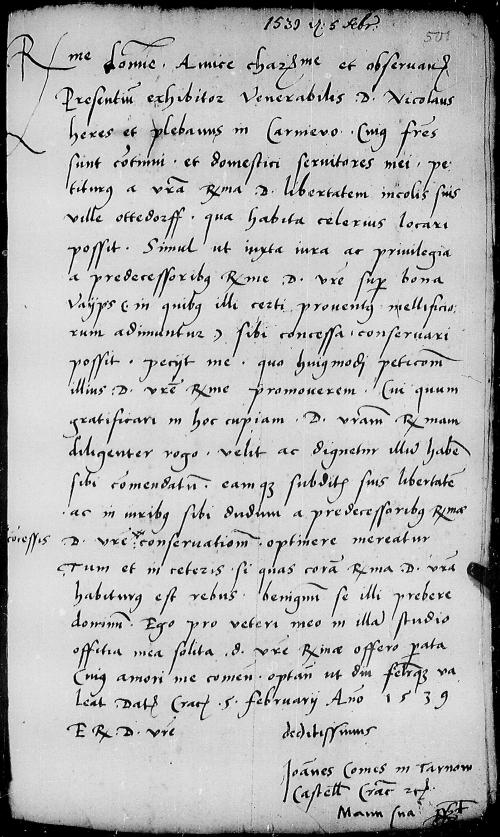 1539 5 febr.
501
Rme domine. Amice charme et observand
Presentium exhibitor venerabilis D. Nicolaus
heres et plebanus in Carnievo. Cuiq frēs
sunt cōmuni. et domestici servitores mei. pe
titurq a vrā Rma D. libertatem incolis suis
ville ottedorff. qua habita celerius locari
possit. Simul ut iuxta iura ac privilegia
a predecessoribq Rme D. vrē sup bona
in quibq illi certi proventq mellificio
rum adimuntur) sibi concessa. conservari
possit. pecijt me. quo huiqmodj peticonē
illius D. vrē Rme promoverem. Cui quum
gratificari in hoc cupiam. D. vram Rmam
diligenter rogo. velit ac dignetur illū habē
sibi comendatū. eamq subditis suis libertatē
ac in iuribq sibi dudum a predecessoribq Rmæ
cōcessis
D. vrē conservationem. optinere mereatur
Tum et in ceteris. si quas corā Rma D. vrā
habiturq est rebus. benignū se illi prebere
dominū. Ego pro veteri meo in illā studio
offitia mea solita. d. vrē Rmæ offero parata
Cuiq amori me comen. optan ut diu va
leat Dat Crac. 5. februarij Año 1539
E R D. vrē
deditissimus
Joānes Comes in Tarnow
Castell Crac
Manu sua